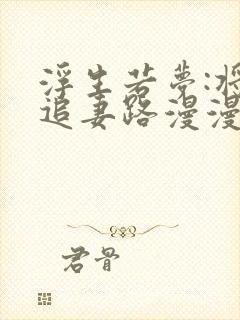 浮生若梦:将
追妻路漫漫
君骨